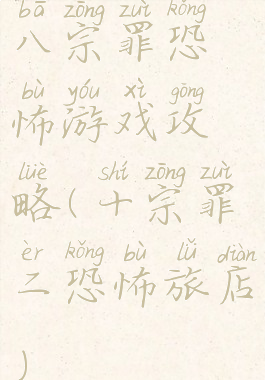 bā zōng zuì kǒng
八宗罪恐
bù yóu xì gōng
怖游戏攻
lüè shí zōng zuì
略(十宗罪
èr kǒng bù lǚ diàn
二恐怖旅店
)